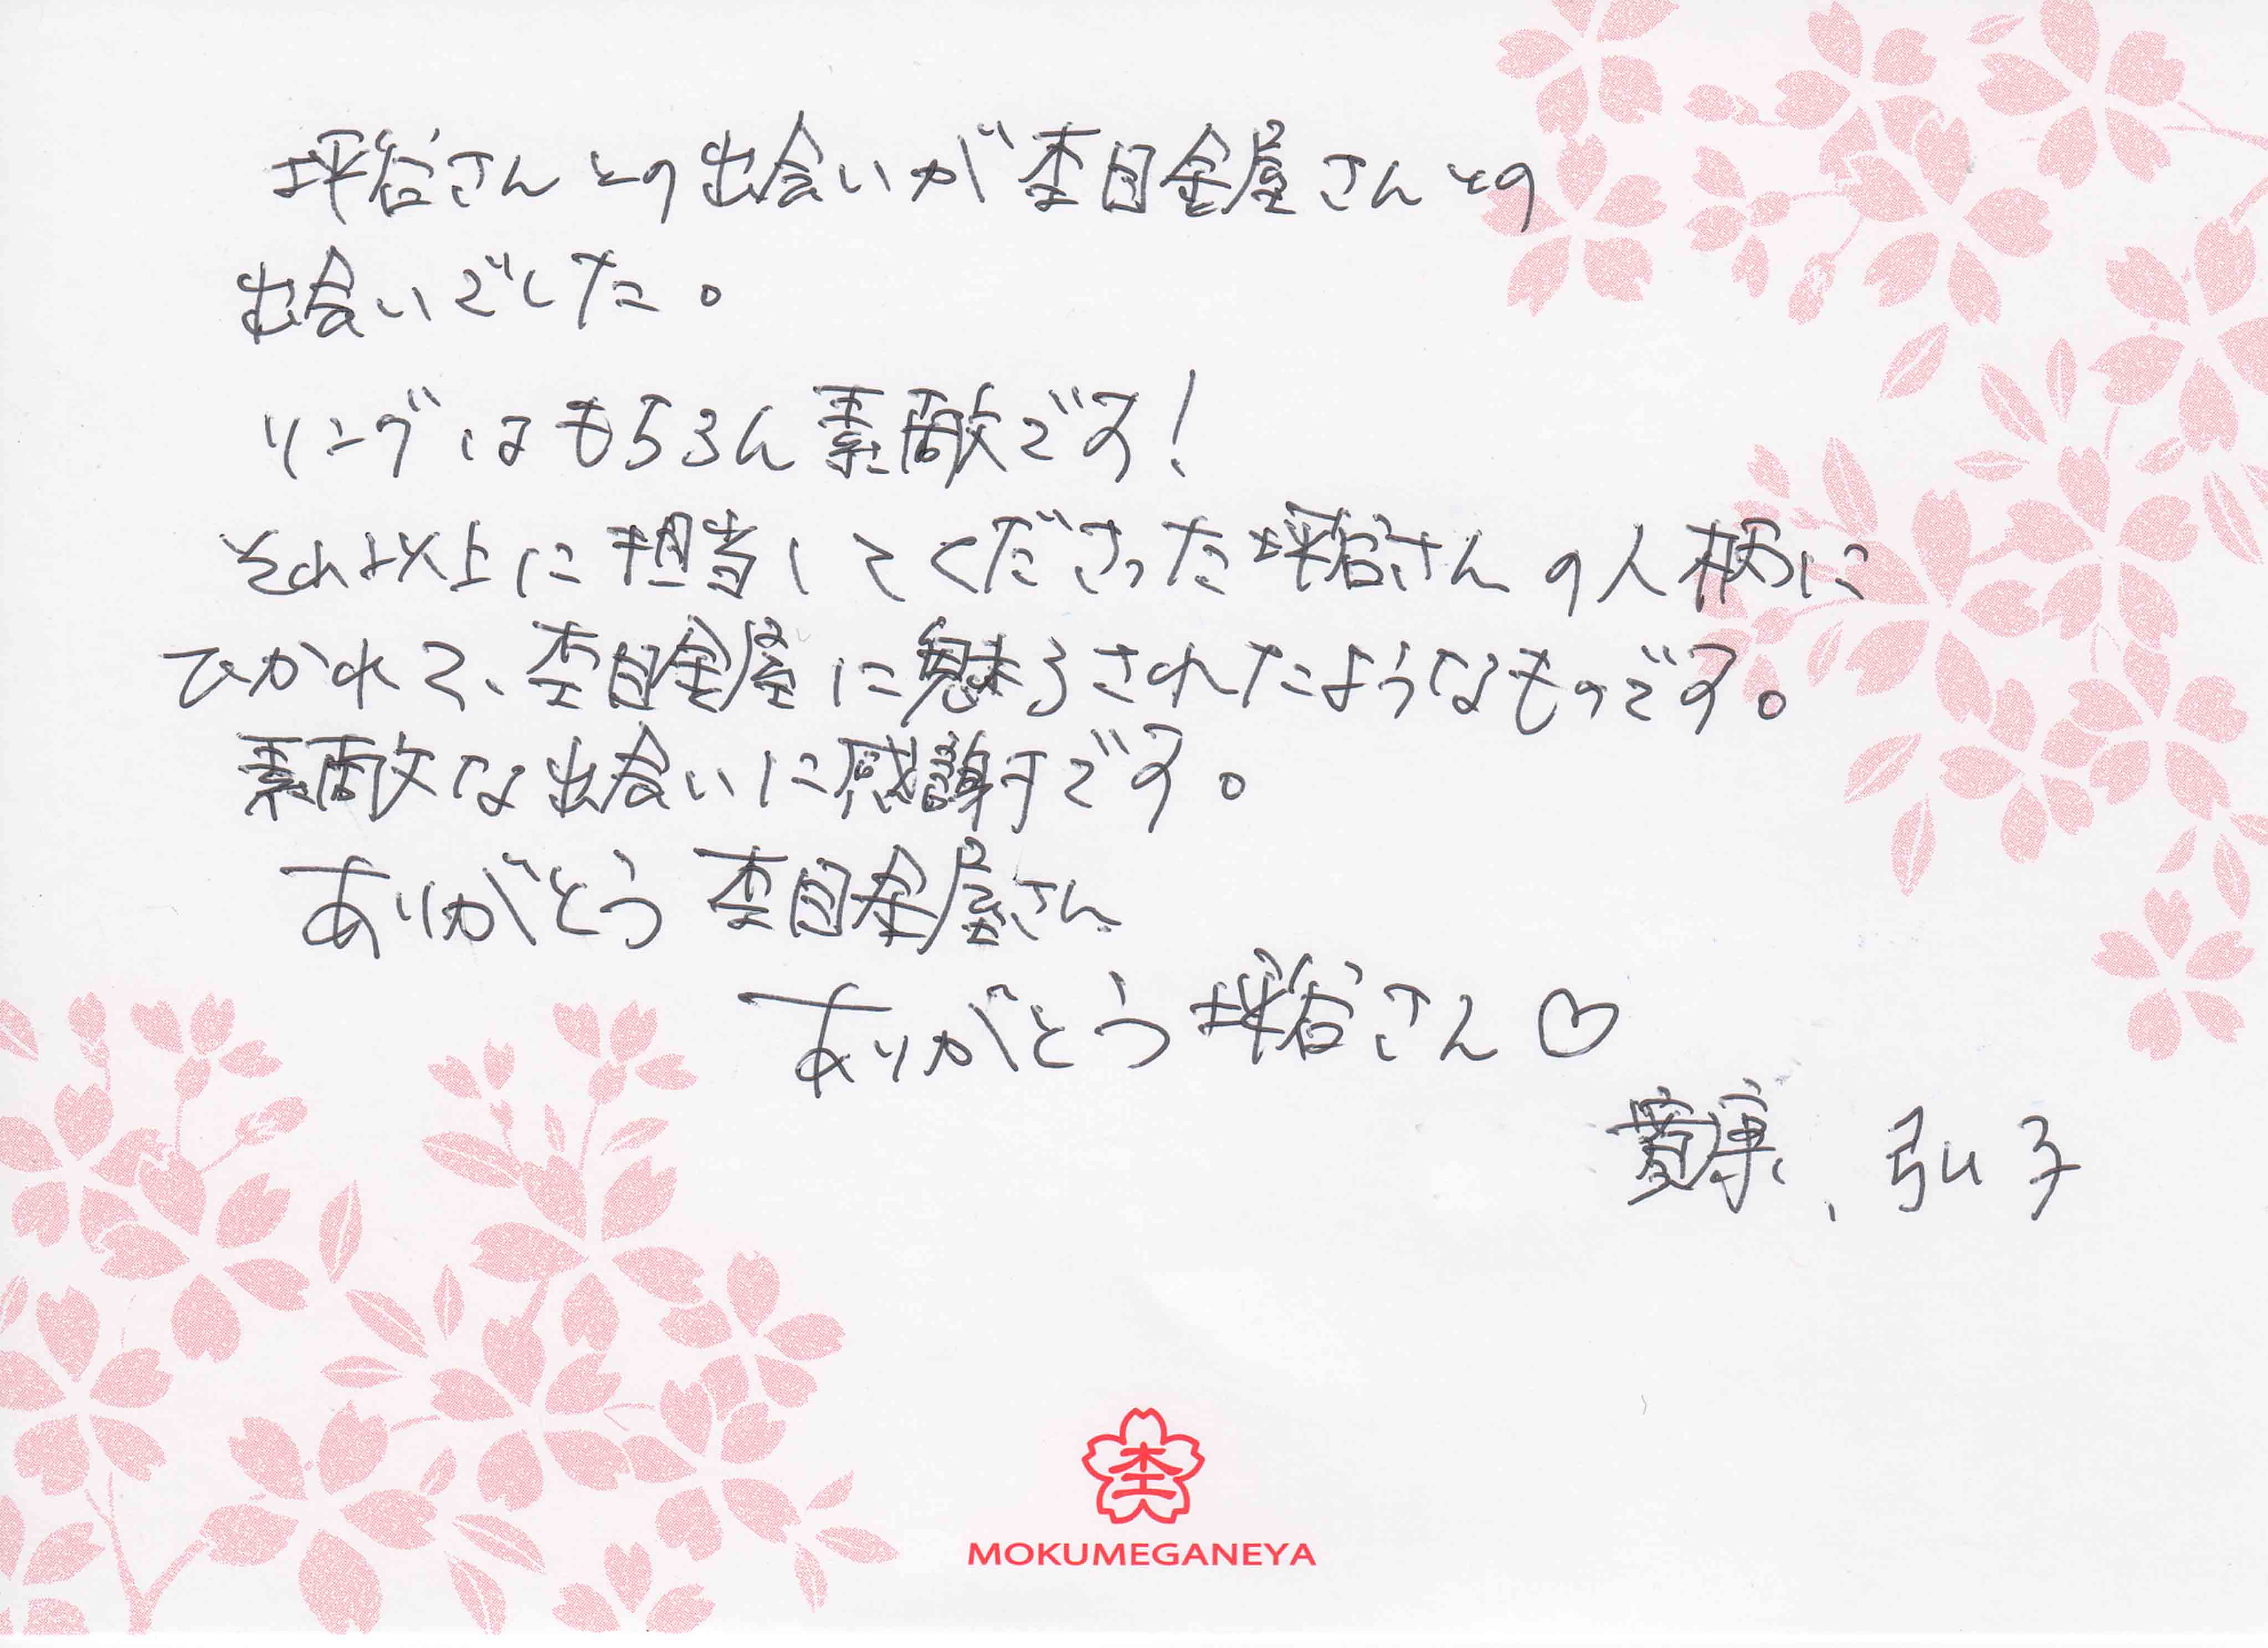 坪谷さんとの出会いが杢目金屋さんとの
出会いでした。
リングはもちろん素敵です!
それ以上に担当してくださった坪谷さんの人柄に
ひかれて、杢目金屋に魅了されたようなものです。
素敵な出会いに感謝です。
ありがとう 杢目金屋さん
ありがとう 坪谷さん♡
弘子
杢
MOKUMEGANEYA